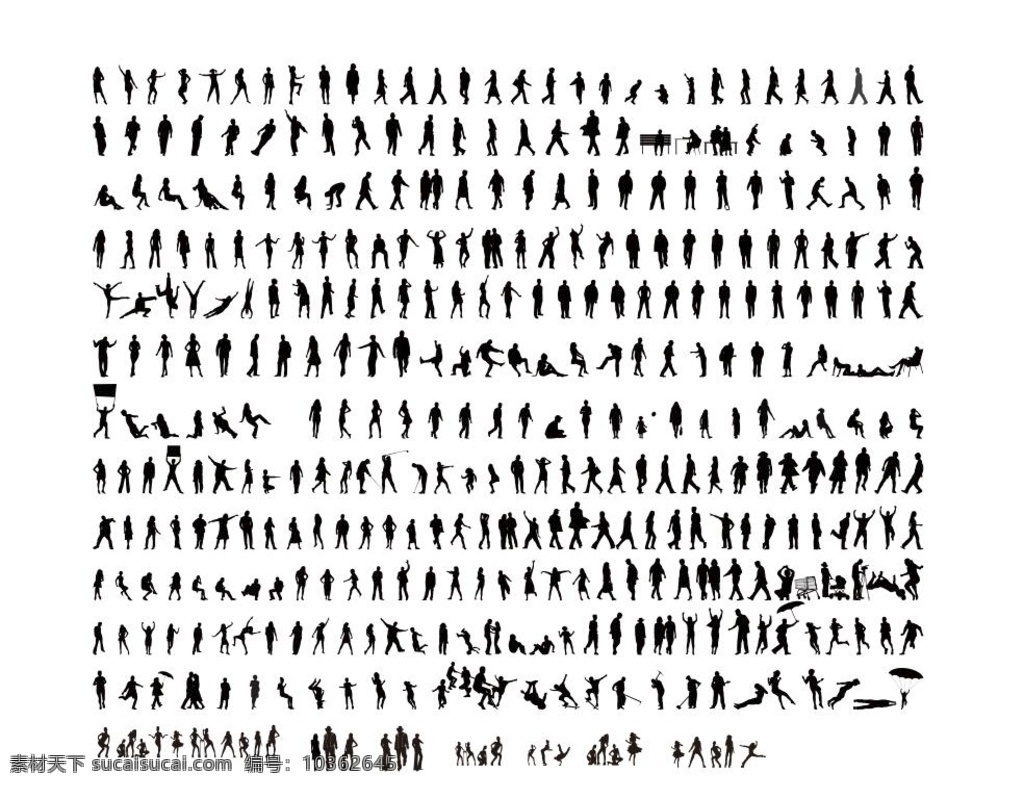 素材天下 sucaisucai.com 编号：10362645